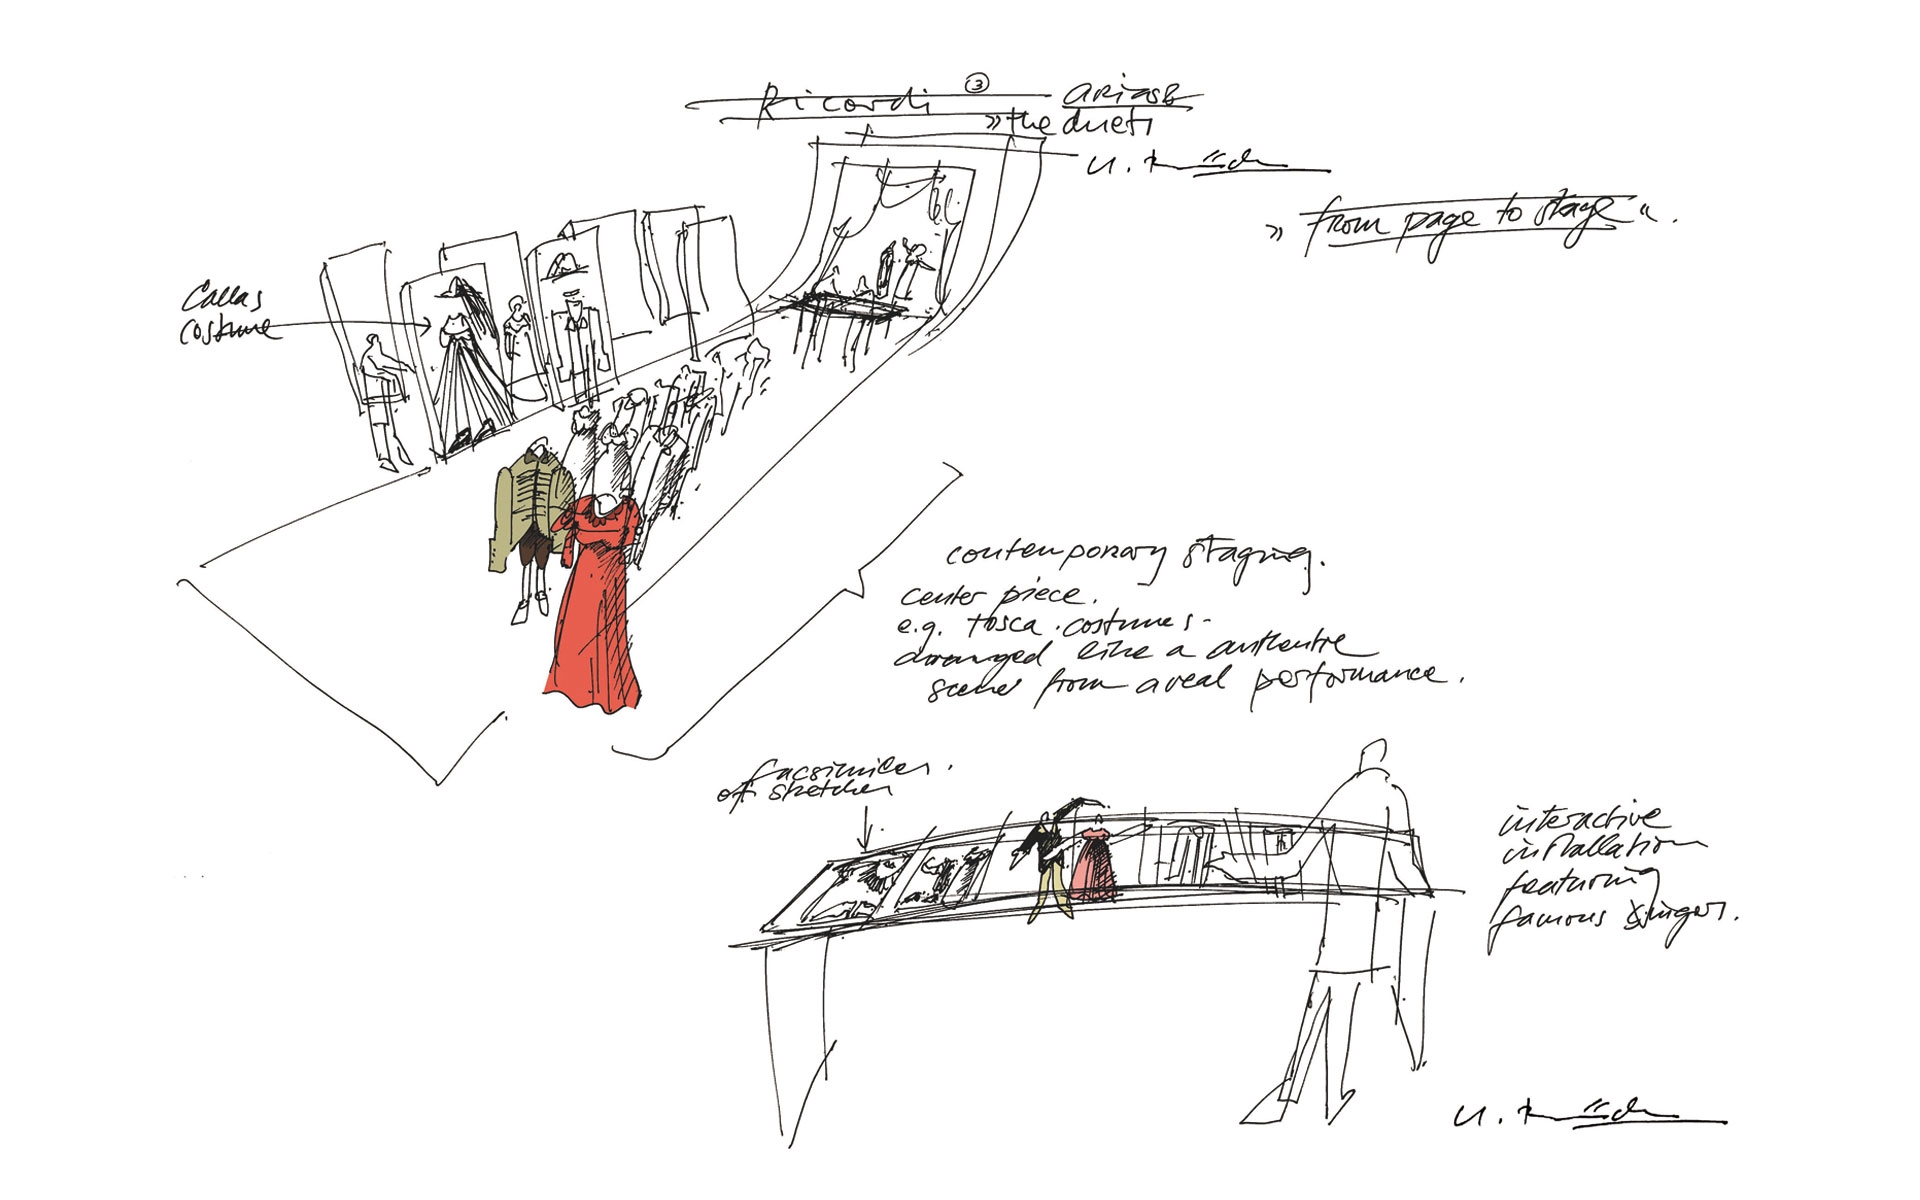 Ricordi ③ arias &
» the duets
» from page to stage «.
Callas
costume
contemporary staging.
center piece.
e.g. tosca costumes -
arranged like a authentic
scene from a real performance.
facsimiles.
of sketches
interactive
installation
featuring
famous singers.